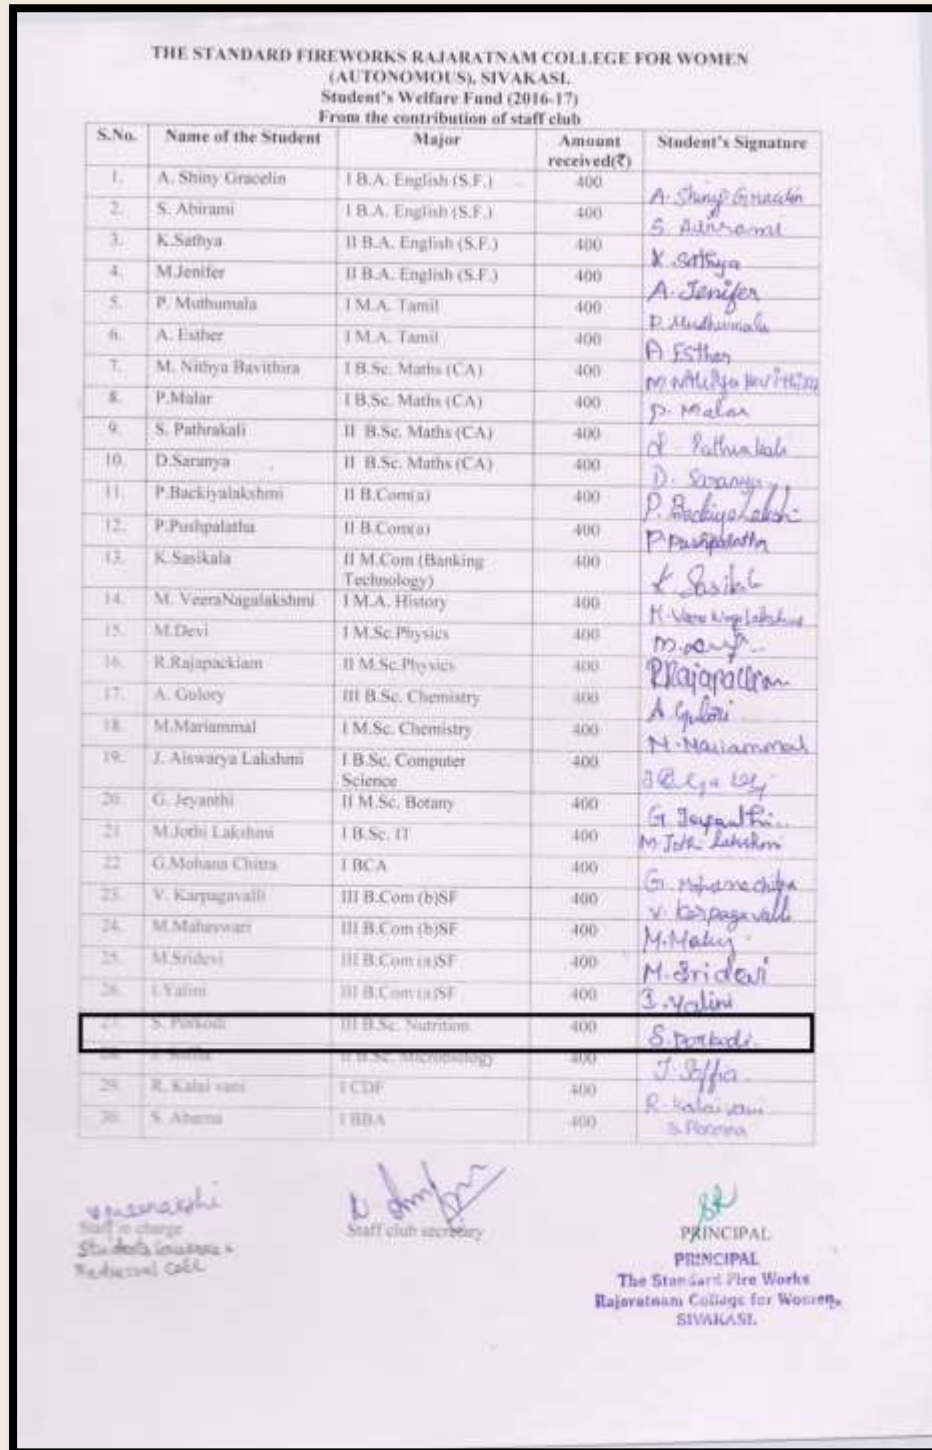 THE STANDARD FIREWORKS RAJARATNAM COLLEGE FOR WOMEN
(AUTONOMOUS), SIVAKASI.
Student's Welfare Fund (2016-17)
From the contribution of staff club
S.No. Name of the Student Major Amount received(₹) Student's Signature
1. A. Shiny Gracelin I B.A. English (S.F.) 400 A. Shiny Gracelin
2. S. Abirami I B.A. English (S.F.) 400 S. Abirami
3. K.Sathya II B.A. English (S.F.) 400 K. Sathya
4. M.Jenifer II B.A. English (S.F.) 400 A. Jenifer
5. P. Muthumala I M.A. Tamil 400 P. Muthumala
6. A. Esther I M.A. Tamil 400 A Esther
7. M. Nithya Bavithira I B.Sc. Maths (CA) 400 M. Nithya
8. P.Malar I B.Sc. Maths (CA) 400 P. Malar
9. S. Pathrakali II B.Sc. Maths (CA) 400 Pathrakali
10. D.Saranya II B.Sc. Maths (CA) 400 D. Saranya
11. P.Backiyalakshmi II B.Com(a) 400 P.
12. P.Pushpalatha II B.Com(a) 400 P. Pushpalatha
13. K.Sasikala II M.Com (Banking Technology) 400 K
14. M. VeeraNagalakshmi I M.A. History 400
15. M.Devi I M.Sc.Physics 400
16. R.Rajapackiam II M.Sc.Physics 400
17. A. Gulory III B.Sc. Chemistry 400 A
18. M.Mariammal I M.Sc. Chemistry 400 M. Mariammal
19. J. Aiswarya Lakshmi I B.Sc. Computer Science 400
20. G. Jeyanthi II M.Sc. Botany 400 G Jeyanthi
21 M.Jothi Lakshmi I B.Sc. IT 400 M. Jothi Lakshmi
22 G.Mohana Chitra I BCA 400 G. Mohanachitra
23. V. Karpagavalli III B.Com (b)SF 400 V. Karpagavalli
24. M.Maheswari III B.Com (b)SF 400
25. M.Sridevi III B.Com (a)SF 400 M. Sridevi
26. I.Yalini III B.Com (a)SF 400 I. Yalini
27. S. Porkodi III B.Sc. Nutrition 400 S. Porkodi
II B.Sc. Microbiology 400 J. Soffia
29. R. Kalai vani I CDF 400 R. Kalaivani
30. I BBA 400
Staff in charge
Staff club secretary
PRINCIPAL
PRINCIPAL
The Standard Fire Works
Rajaratnam College for Women,
SIVAKASI.